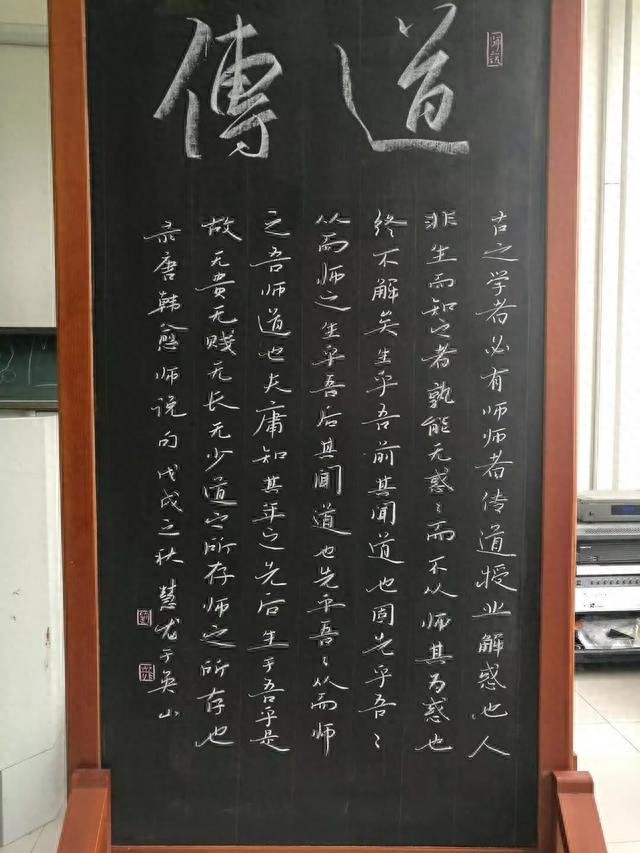 傳道
师说
古之学者必有师师者传道授业解惑也人
非生而知之者孰能无惑〻而不从师其为惑也
终不解矣生乎吾前其聞道也固先乎吾〻
从而师之生乎吾后其聞道也先乎吾〻从而师
之吾师道也夫庸知其年之先后生于吾乎是
故无贵无贱无长无少道之所存师之所存也
录唐韩愈师说句戊戌之秋慧于英山